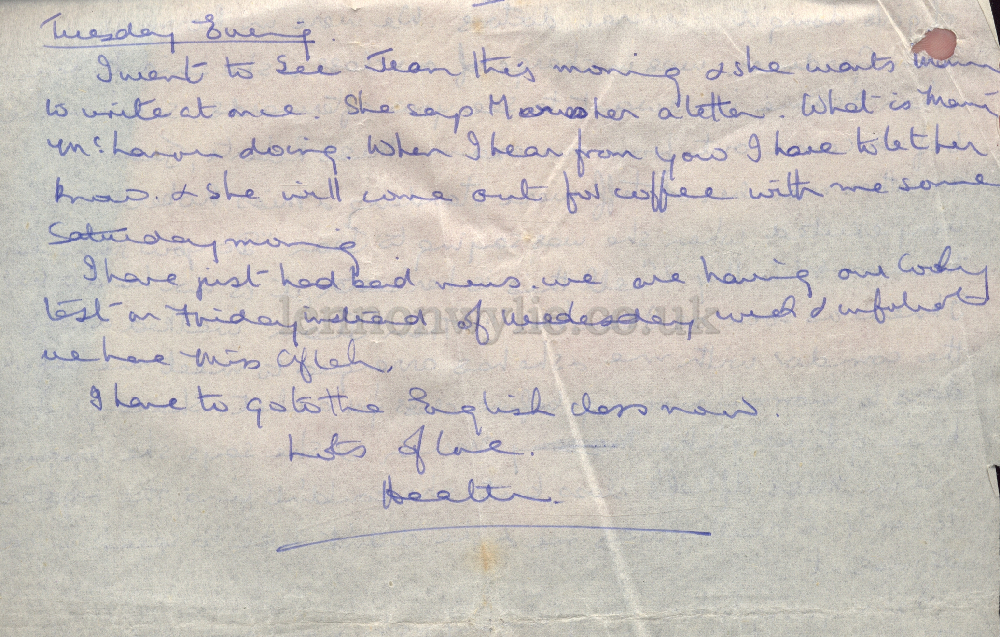 Tuesday Evening.
I went to see Jean this morning & she wants
to write at once. She says her a letter. What is
doing. When I hear from you I have to let her
know. & she will come out for coffee with me some
Saturday morning
I have just had bad news. we are having our
test on Friday instead of Wednesday week &
we have Miss
I have to go to the English class now.
Lots of love.
Heather.
lennonwylie.co.uk